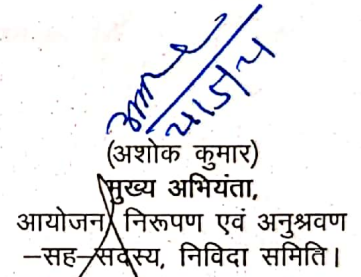 (अशोक कुमार)
मुख्य अभियंता,
आयोजन, निरूपण एवं अनुश्रवण
–सह–सदस्य, निविदा समिति।